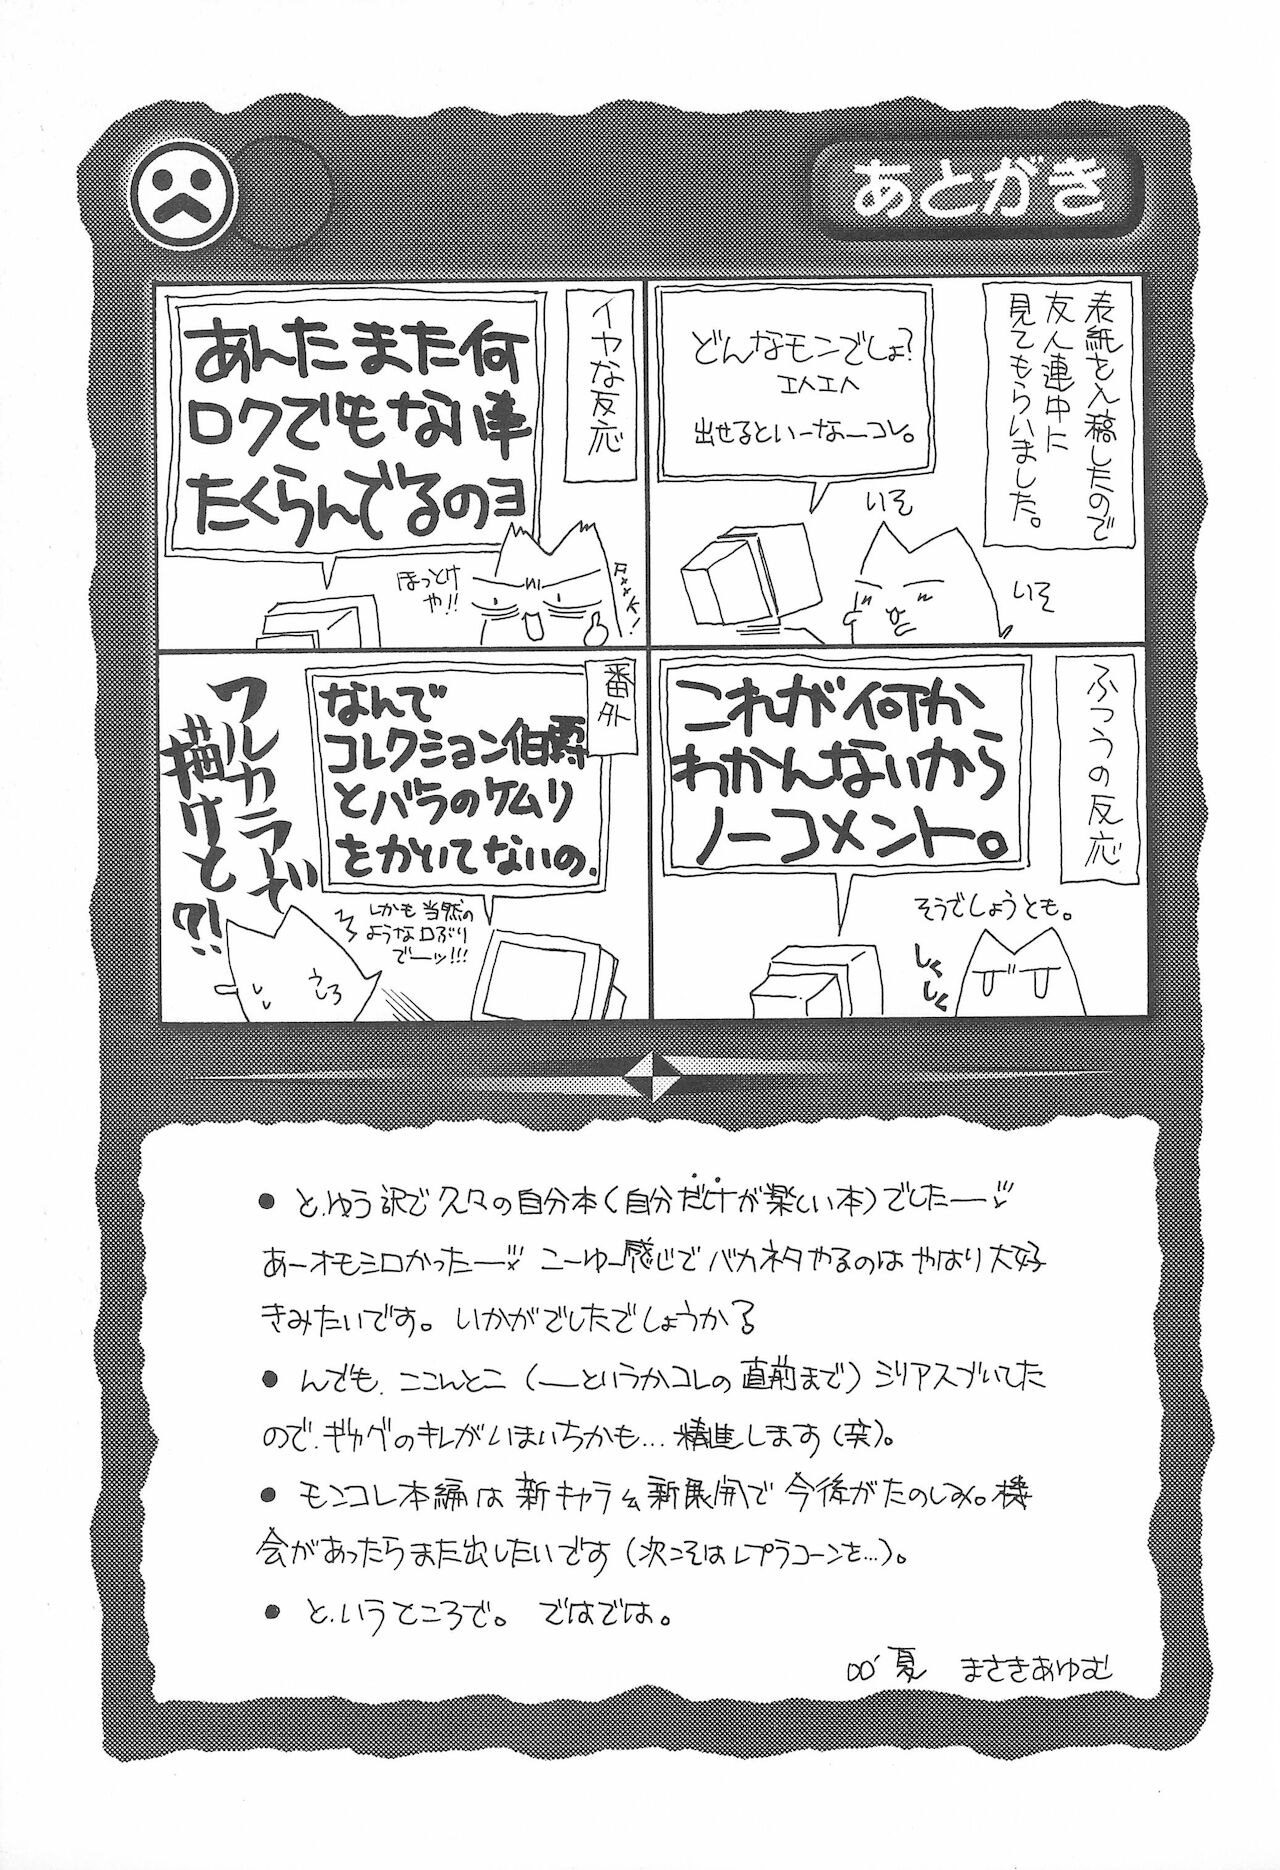 あとがき
表紙を入稿したので
友人連中に
見てもらいました。
どんなモンでしょ?
エヘエヘ
出せるといーなーコレ。
いそ
いそ
イヤな反応
あんたまた何
ロクでもない事
たくらんでるのヨ
ほっとけ
や!!
ふつうの反応
これが何か
わかんないから
ノーコメント。
そうでしょうとも。
しくしく
番外
なんで
コレクション伯爵
とバラのケムリ
をかいてないの.
しかも当然の
ような口ぶり
でーッ!!!
フルカラーで
描けと?!
●と、ゆう訳で久々の自分本(自分だけが楽しい本)でしたー
あーオモシロかったー こーゆー感じでバカネタやるのはやはり大好
きみたいです。いかがでしたでしょうか?
●んでも、ここんとこ(―というかコレの直前まで)シリアスづいてた
ので、ギャグのキレがいまいちかも…精進します(笑)。
●モンコレ本編は新キャラ&新展開で今後がたのしみ。機
会があったらまた出したいです(次こそはレプラコーンを…)。
●と、いうところで。ではでは。
00'夏 まさきあゆむ